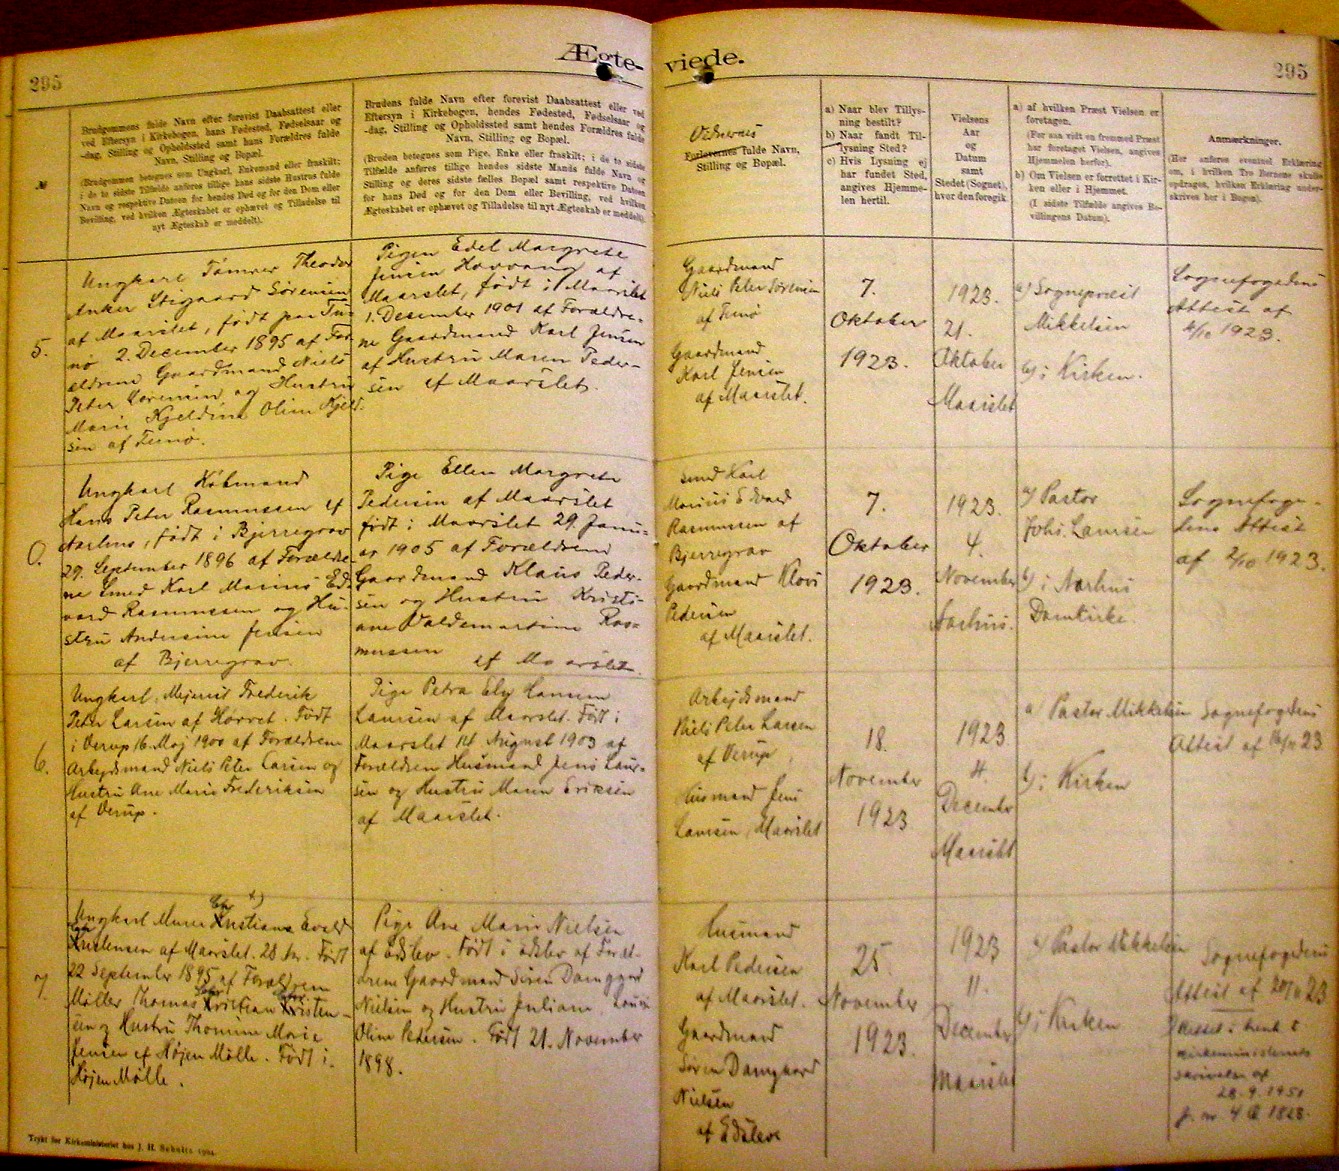 295
Ægte-
viede.
295
№
Brudgommens fulde Navn efter forevist Daabsattest eller
ved Eftersyn i Kirkebogen, hans Fødested, Fødselsaar og
-dag, Stilling og Opholdssted samt hans Forældres fulde
Navn, Stilling og Bopæl.
(Brudgommen betegnes som Ungkarl, Enkemand eller fraskilt;
i de to sidste Tilfælde anføres tillige hans sidste Hustrus fulde
Navn og respektive Datoen for hendes Død og for den Dom eller
Bevilling, ved hvilken Ægteskabet er ophævet og Tilladelse til
nyt Ægteskab er meddelt).
Brudens fulde Navn efter forevist Daabsattest eller ved
Eftersyn i Kirkebogen, hendes Fødested, Fødselsaar og
-dag, Stilling og Opholdssted samt hendes Forældres fulde
Navn, Stilling og Bopæl.
(Bruden betegnes som Pige, Enke eller fraskilt; i de to sidste
Tilfælde anføres tillige hendes sidste Mands fulde Navn og
Stilling og deres sidste fælles Bopæl samt respektive Datoen
for hans Død og for den Dom eller Bevilling, ved hvilken
Ægteskabet er ophævet og Tilladelse til nyt Ægteskab er meddelt).
Vidnernes
Forlovernes fulde Navn,
Stilling og Bopæl.
a) Naar blev Tillys-
ning bestilt?
b) Naar fandt Til-
lysning Sted?
c) Hvis Lysning ej
har fundet Sted,
angives Hjemme-
len hertil.
Vielsens
Aar
og
Datum
samt
Stedet (Sognet),
hvor den foregik.
a) af hvilken Præst Vielsen er
foretagen.
(For saa vidt en fremmed Præst
har foretaget Vielsen, angives
Hjemmelen herfor).
b) Om Vielsen er forrettet i Kir-
ken eller i Hjemmet.
(I sidste Tilfælde angives Be-
villingens Datum).
Anmærkninger.
(Her anføres eventuel Erklæring
om, i hvilken Tro Børnene skulle
opdrages, hvilken Erklæring under-
skrives her i Bogen).
5.
Ungkarl Tømrer Theodor
Anker Stigaard Sørensen
af Maarslet, født paa Tu-
nø 2. December 1895 af For-
ældrene Gaardmand Niels
Peter Sørensen og Hustru
Marie Kjeldine Oline Kjeld-
sen af Tunø.
Pigen Edel Margrete
Jensen Hovvang af
Maarslet, født i Maarslet
1. December 1901 af Forældre-
ne Gaardmand Karl Jensen
af Hustru Maren Peder-
sen af Maarslet.
Gaardmand
Niels Peter Sørensen
af Tunø
Gaardmand
Karl Jensen
af Maarslet.
7.
Oktober
1923.
1923.
21.
Oktober
Maarslet
a) Sognepræst
Mikkelsen
b) i Kirken.
Sognefogdens
Attest af
4/10 1923.
0.
Ungkarl Købmand
Hans Peter Rasmussen af
Aarhus, født i Bjerregrav
29. September 1896 af Forældre-
ne Smed Karl Marius Ed-
vard Rasmussen og Hu-
stru Andersine Jensen
af Bjerregrav.
Pige Ellen Margrete
Pedersen af Maarslet
født i Maarslet 29. Janu-
ar 1905 af Forældrene
Gaardmand Klaus Peder-
sen og Hustru Kristi-
ane Valdemartine Ras-
mussen af Maarslet.
Smed Karl
Marius Edvard
Rasmussen af
Bjerregrav
Gaardmand Klavs
Pedersen
af Maarslet.
7.
Oktober
1923.
1923.
4.
November
Aarhus.
a) Pastor
Johs. Laursen
b) i Aarhus
Domkirke.
Sognefoge-
dens Attest
af 2/10 1923.
6.
Ungkarl, Mejerist Frederik
Peter Larsen af Hørret. Født
i Verup 16. Maj 1900 af Forældrene
Arbejdsmand Niels Peter Larsen og
Hustru Ane Marie Frederiksen
af Verup.
Pige Petra Ely Hansen
Laursen af Maarslet. Født i
Maarslet 14 August 1903 af
Forældrene Husmand Jens Laur-
sen og Hustru Maren Eriksen
af Maarslet.
Arbejdsmand
Niels Peter Larsen
af Verup,
Husmand Jens
Laursen, Maarslet
18.
November
1923
1923.
4.
December
Maarslet
a) Pastor Mikkelsen
b) i Kirken
Sognefogdens
Attest af 16/11 23.
7.
Ungkarl Murer Kristian Evald
Kristensen af Maarslet. 28 Aar. Født
22 September 1895 af Forældrene
Møller Thomas Kristian Kristen-
sen og Hustru Thomine Marie
Jensen af Højen Mølle. Født i
Højen Mølle.
Pige Ane Marie Nielsen
af Edslev. Født i Edslev af Foræl-
drene Gaardmand Søren Damgaard
Nielsen og Hustru Juliane Louise
Oline Pedersen. Født 21. November
1898.
Husmand
Karl Pedersen
af Maarslet.
Gaardmand
Søren Damgaard
Nielsen
af Edslev
25.
November
1923.
1923
11.
December
Maarslet
a) Pastor Mikkelsen
b) i Kirken
Sognefogdens
Attest af 20/11 23
Rettet i henh. t.
kirkeministeriets
skrivelse af
28.9.1951
Trykt for Kirkeministeriet hos J. H. Schultz. 1904.